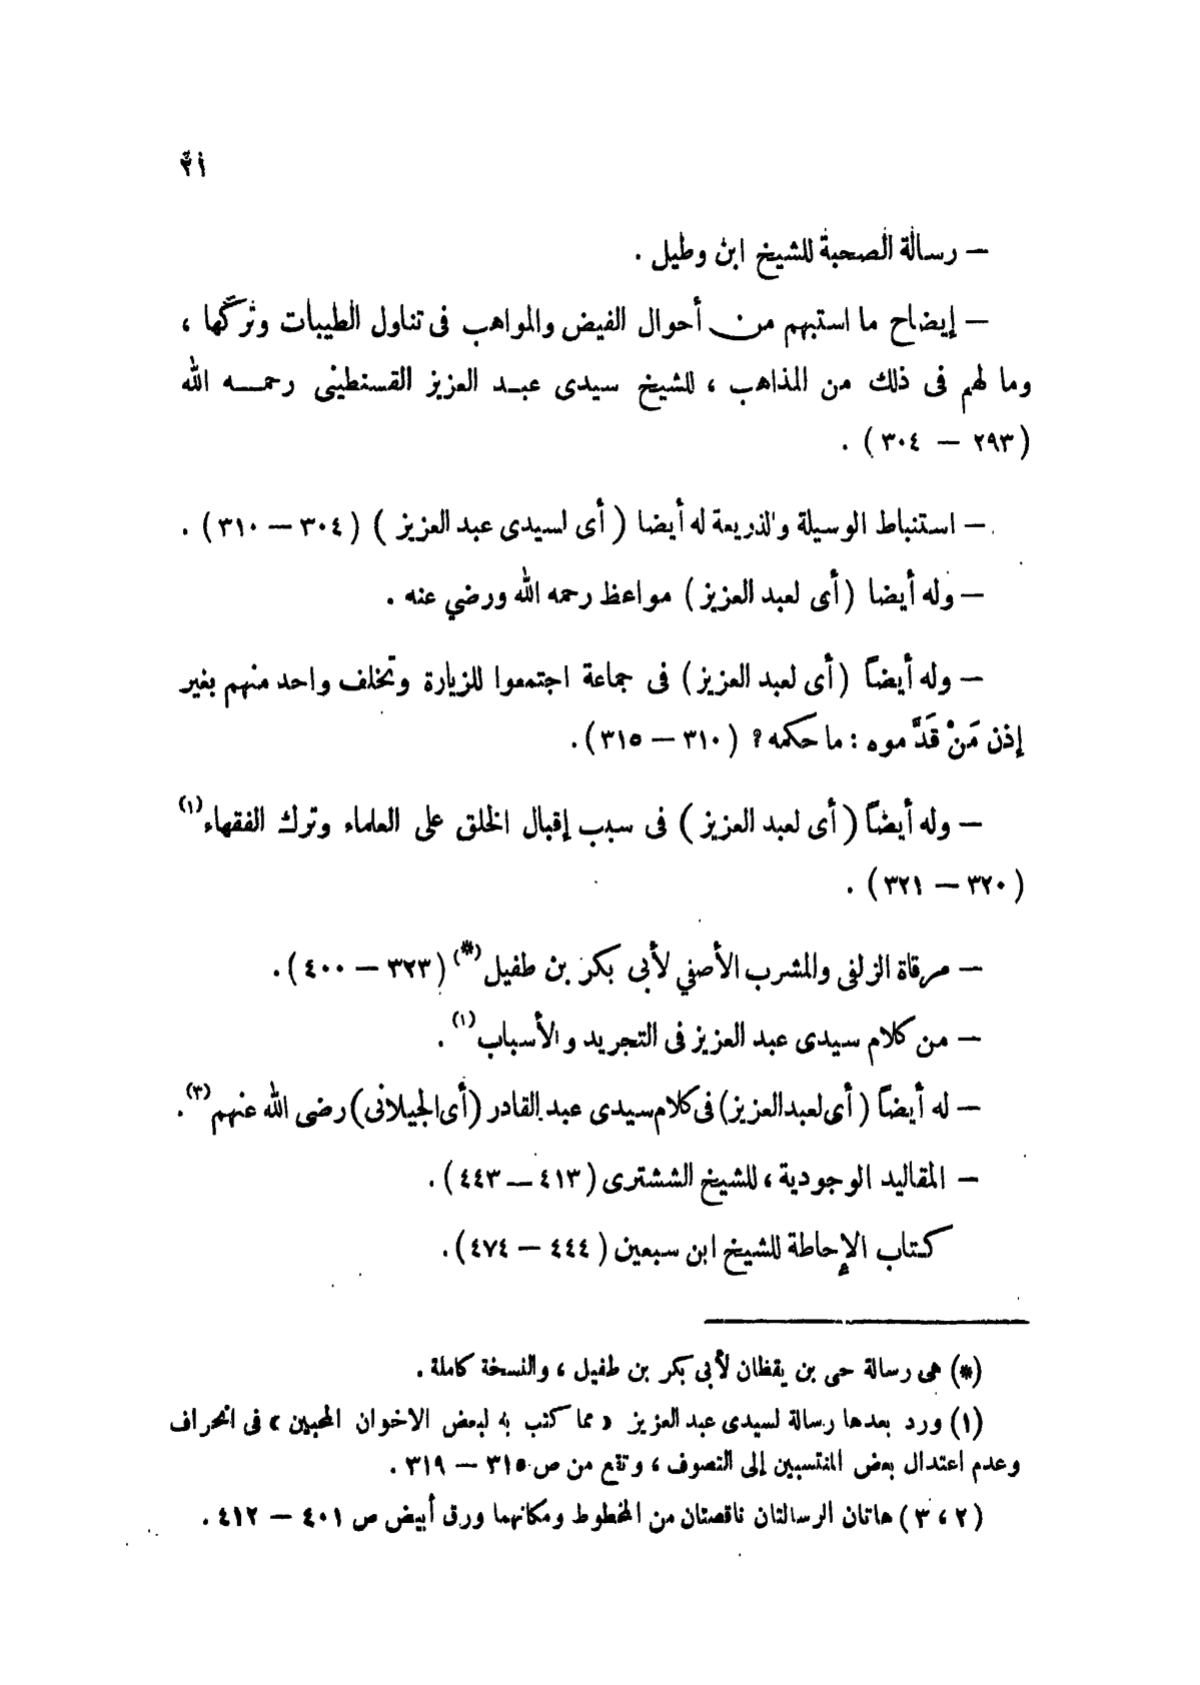 ٢١
— رسالة الصحبة للشيخ ابن وطيل .
— إيضاح ما استبهم من أحوال الفيض والمواهب فى تناول الطيبات وتركها ،
وما لهم فى ذلك من المذاهب ، للشيخ سيدى عبد العزيز القسنطينى رحمه الله
( ٢٩٣ — ٣٠٤ ) .
— استنباط الوسيلة والذريعة له أيضا ( أى لسيدى عبد العزيز ) ( ٣٠٤ — ٣١٠ ) .
— وله أيضا ( أى لعبد العزيز ) مواعظ رحمه الله ورضي عنه .
— وله أيضاً ( أى لعبد العزيز ) فى جماعة اجتمعوا للزيارة وتخلف واحد منهم بغير
إذن مَنْ قَدَّموه : ما حكمه ؟ ( ٣١٠ — ٣١٥ ) .
— وله أيضاً ( أى لعبد العزيز ) فى سبب إقبال الخلق على العلماء وترك الفقهاء (١)
( ٣٢٠ — ٣٢١ ) .
— مرقاة الزلفى والمشرب الأصفي لأبى بكر بن طفيل (*) ( ٣٢٣ — ٤٠٠ ) .
— من كلام سيدى عبد العزيز فى التجريد والأسباب (١) .
— له أيضاً ( أى لعبد العزيز ) فى كلام سيدى عبد القادر ( أى الجيلانى ) رضى الله عنهم (٣) .
— المقاليد الوجودية ، للشيخ الششترى ( ٤١٣ — ٤٤٣ ) .
كتاب الإحاطة للشيخ ابن سبعين ( ٤٤٤ — ٤٧٤ ) .
(*) هى رسالة حى بن يقظان لأبى بكر بن طفيل ، والنسخة كاملة .
(١) ورد بعدها رسالة لسيدى عبد العزيز « مما كتب به لبعض الاخوان المحبين » فى انحراف
وعدم اعتدال بعض المنتسبين إلى التصوف ، وتقع من ص ٣١٥ — ٣١٩ .
( ٢ ، ٣ ) هاتان الرسالتان ناقصتان من المخطوط ومكانهما ورق أبيض ص ٤٠١ — ٤١٢ .